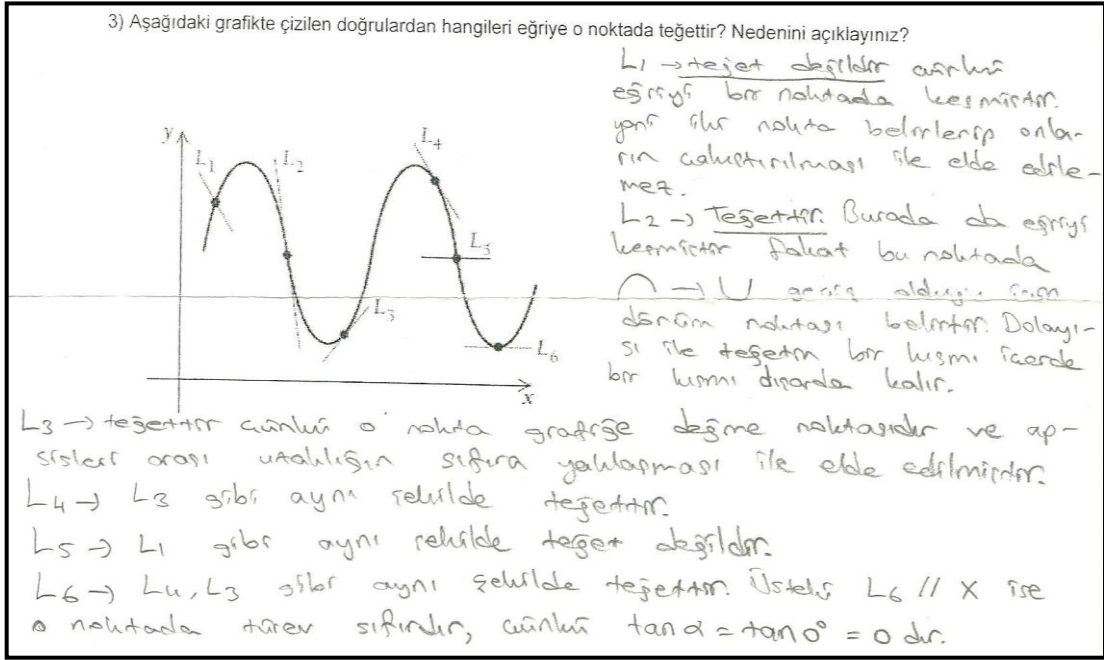 3) Aşağıdaki grafikte çizilen doğrulardan hangileri eğriye o noktada teğettir? Nedenini açıklayınız?
L1 → teğet değildir çünkü
eğriyi bir noktada kesmiştir.
yani iki nokta belirlenip onla-
rın çakıştırılması ile elde edile-
mez.
L2 → Teğettir. Burada da eğriyi
kesmiştir fakat bu noktada
∩ → ∪ geçiş olduğu için
dönüm noktası belirtir. Dolayı-
sı ile teğetin bir kısmı içerde
bir kısmı dışarda kalır.
y
L1
L2
L4
L5
L3
L6
x
L3 → teğettir çünkü o nokta grafiğe değme noktasıdır ve ap-
sisleri arası uzaklığın sıfıra yaklaşması ile elde edilmiştir.
L4 → L3 gibi aynı şekilde teğettir.
L5 → L1 gibi aynı şekilde teğet değildir.
L6 → L4, L3 gibi aynı şekilde teğettir. Üstelik L6 // X ise
o noktada türev sıfırdır, çünkü tan α = tan 0° = 0 dır.